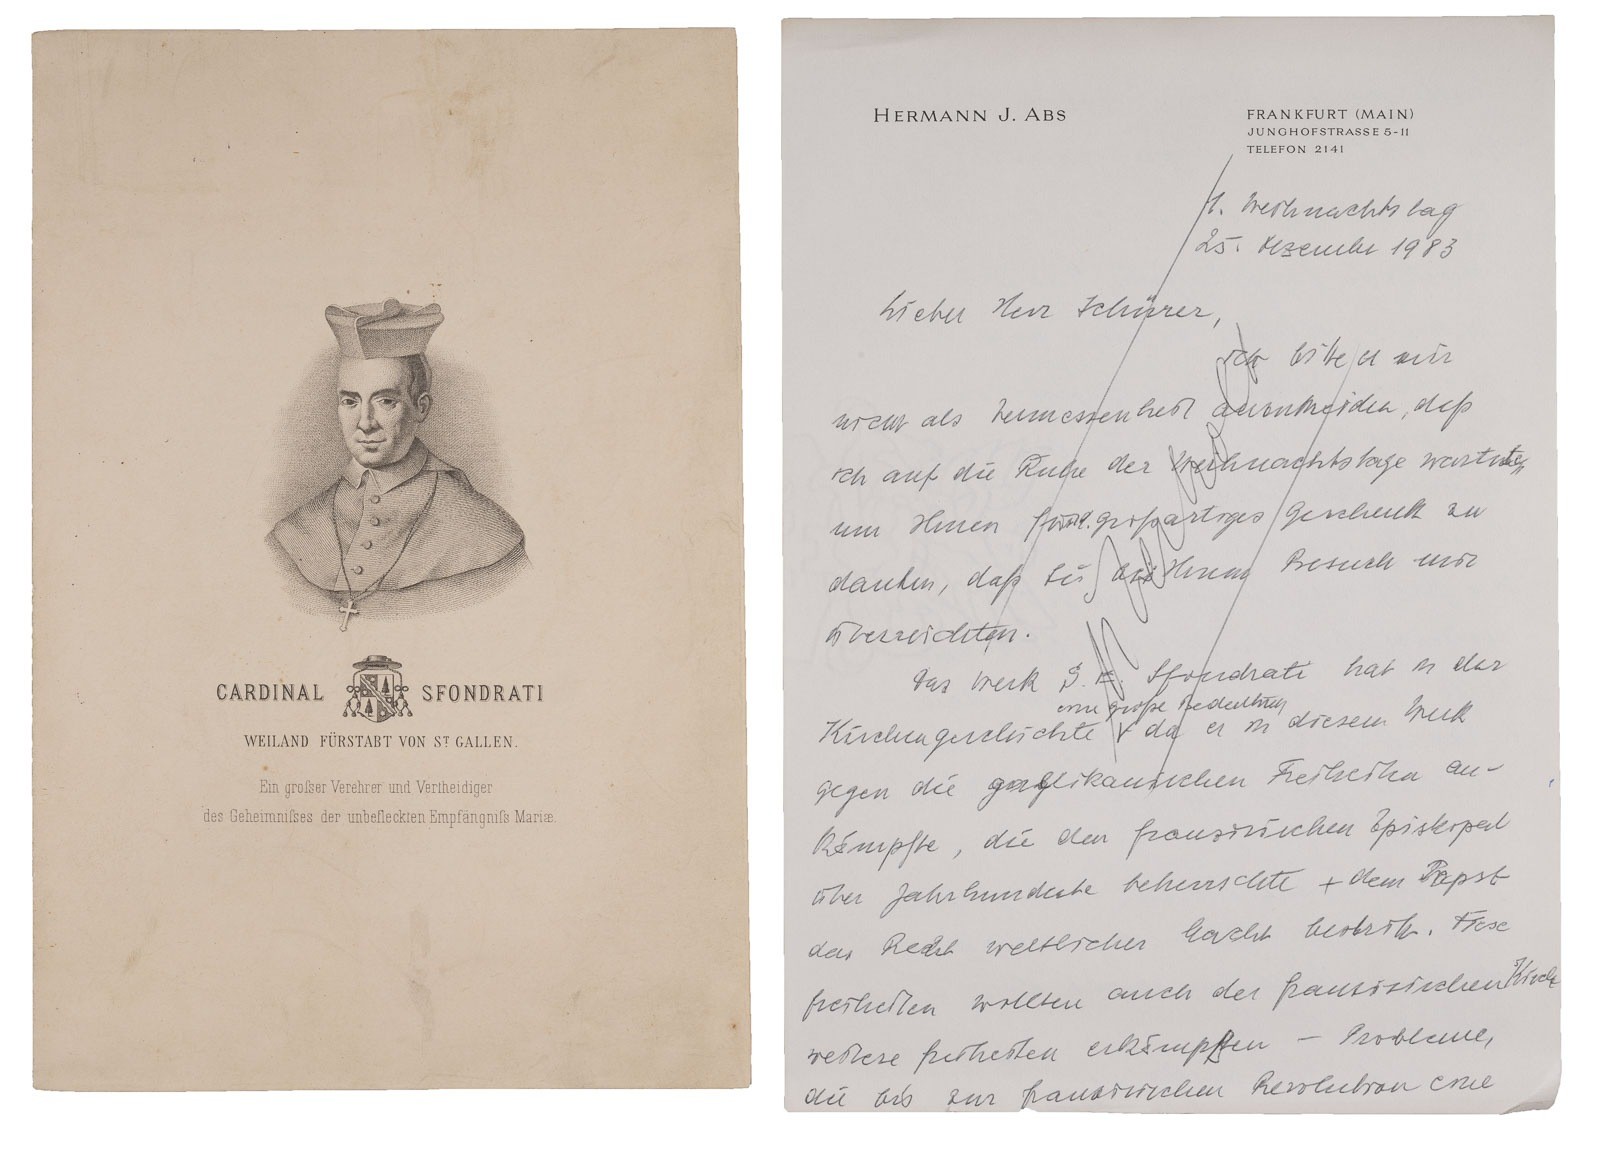 CARDINAL SFONDRATI
WEILAND FÜRSTABT VON ST GALLEN.
Ein großer Verehrer und Vertheidiger
des Geheimnißes der unbefleckten Empfängniß Mariæ.
HERMANN J. ABS
FRANKFURT (MAIN)
JUNGHOFSTRASSE 5-11
TELEFON 2141
1. Weihnachtstag
25. Dezember 1983
Lieber Herr Schürer,
ich bitte es mir
nicht als Vermessenheit daß
ich auf die Ruhe der Weihnachtstage wartete,
um Ihnen großartiges Geschenk zu
danken, daß Sie Ihrem Besuch mir
überreichten.
Das Werk Sfondrati hat in der
eine große Bedeutung
Kirchengeschichte + da er in diesem Werk
gegen die gallikanischen Freiheiten an-
kämpfte, die den französischen Episkopat
über Jahrhunderte beherrschte + dem Papst
das Recht weltlicher Macht bestritt. Diese
Freiheiten wollten auch der französischen Kirche
weitere Freiheiten erkämpfen – Probleme,
die bis zur französischen Revolution eine